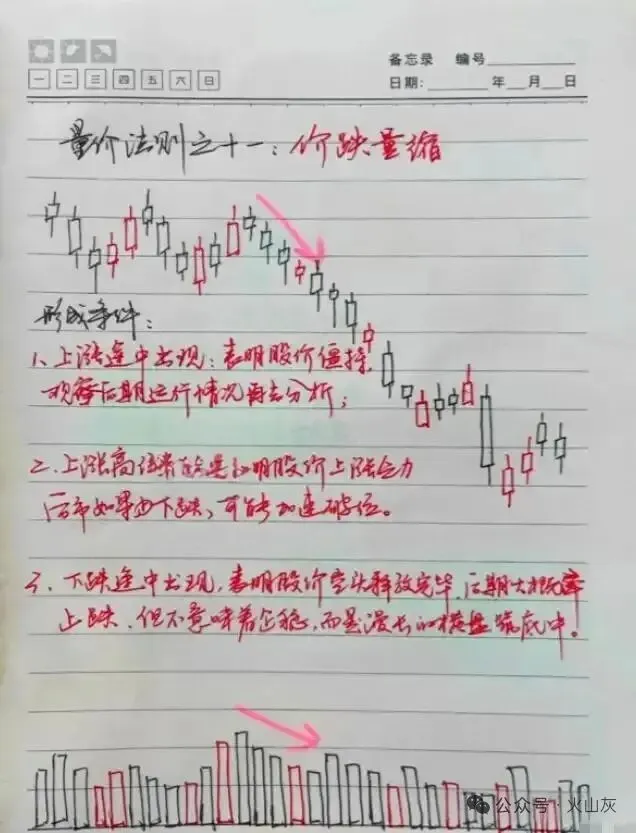 备忘录 编号
一 二 三 四 五 六 日
日期: 年 月 日
量价法则之十一:价跌量缩
形成条件:
1、上涨途中出现:表明股价僵持,
观察后期运行情况再去分析;
2、上涨高位 明股价上涨乏力
后市如果 下跌,可能加速破位。
3、下跌途中出现,表明股价空头释放完毕,后期大概率
止跌,但不意味着企稳,而是漫长的横盘筑底中!
公众号·火山灰